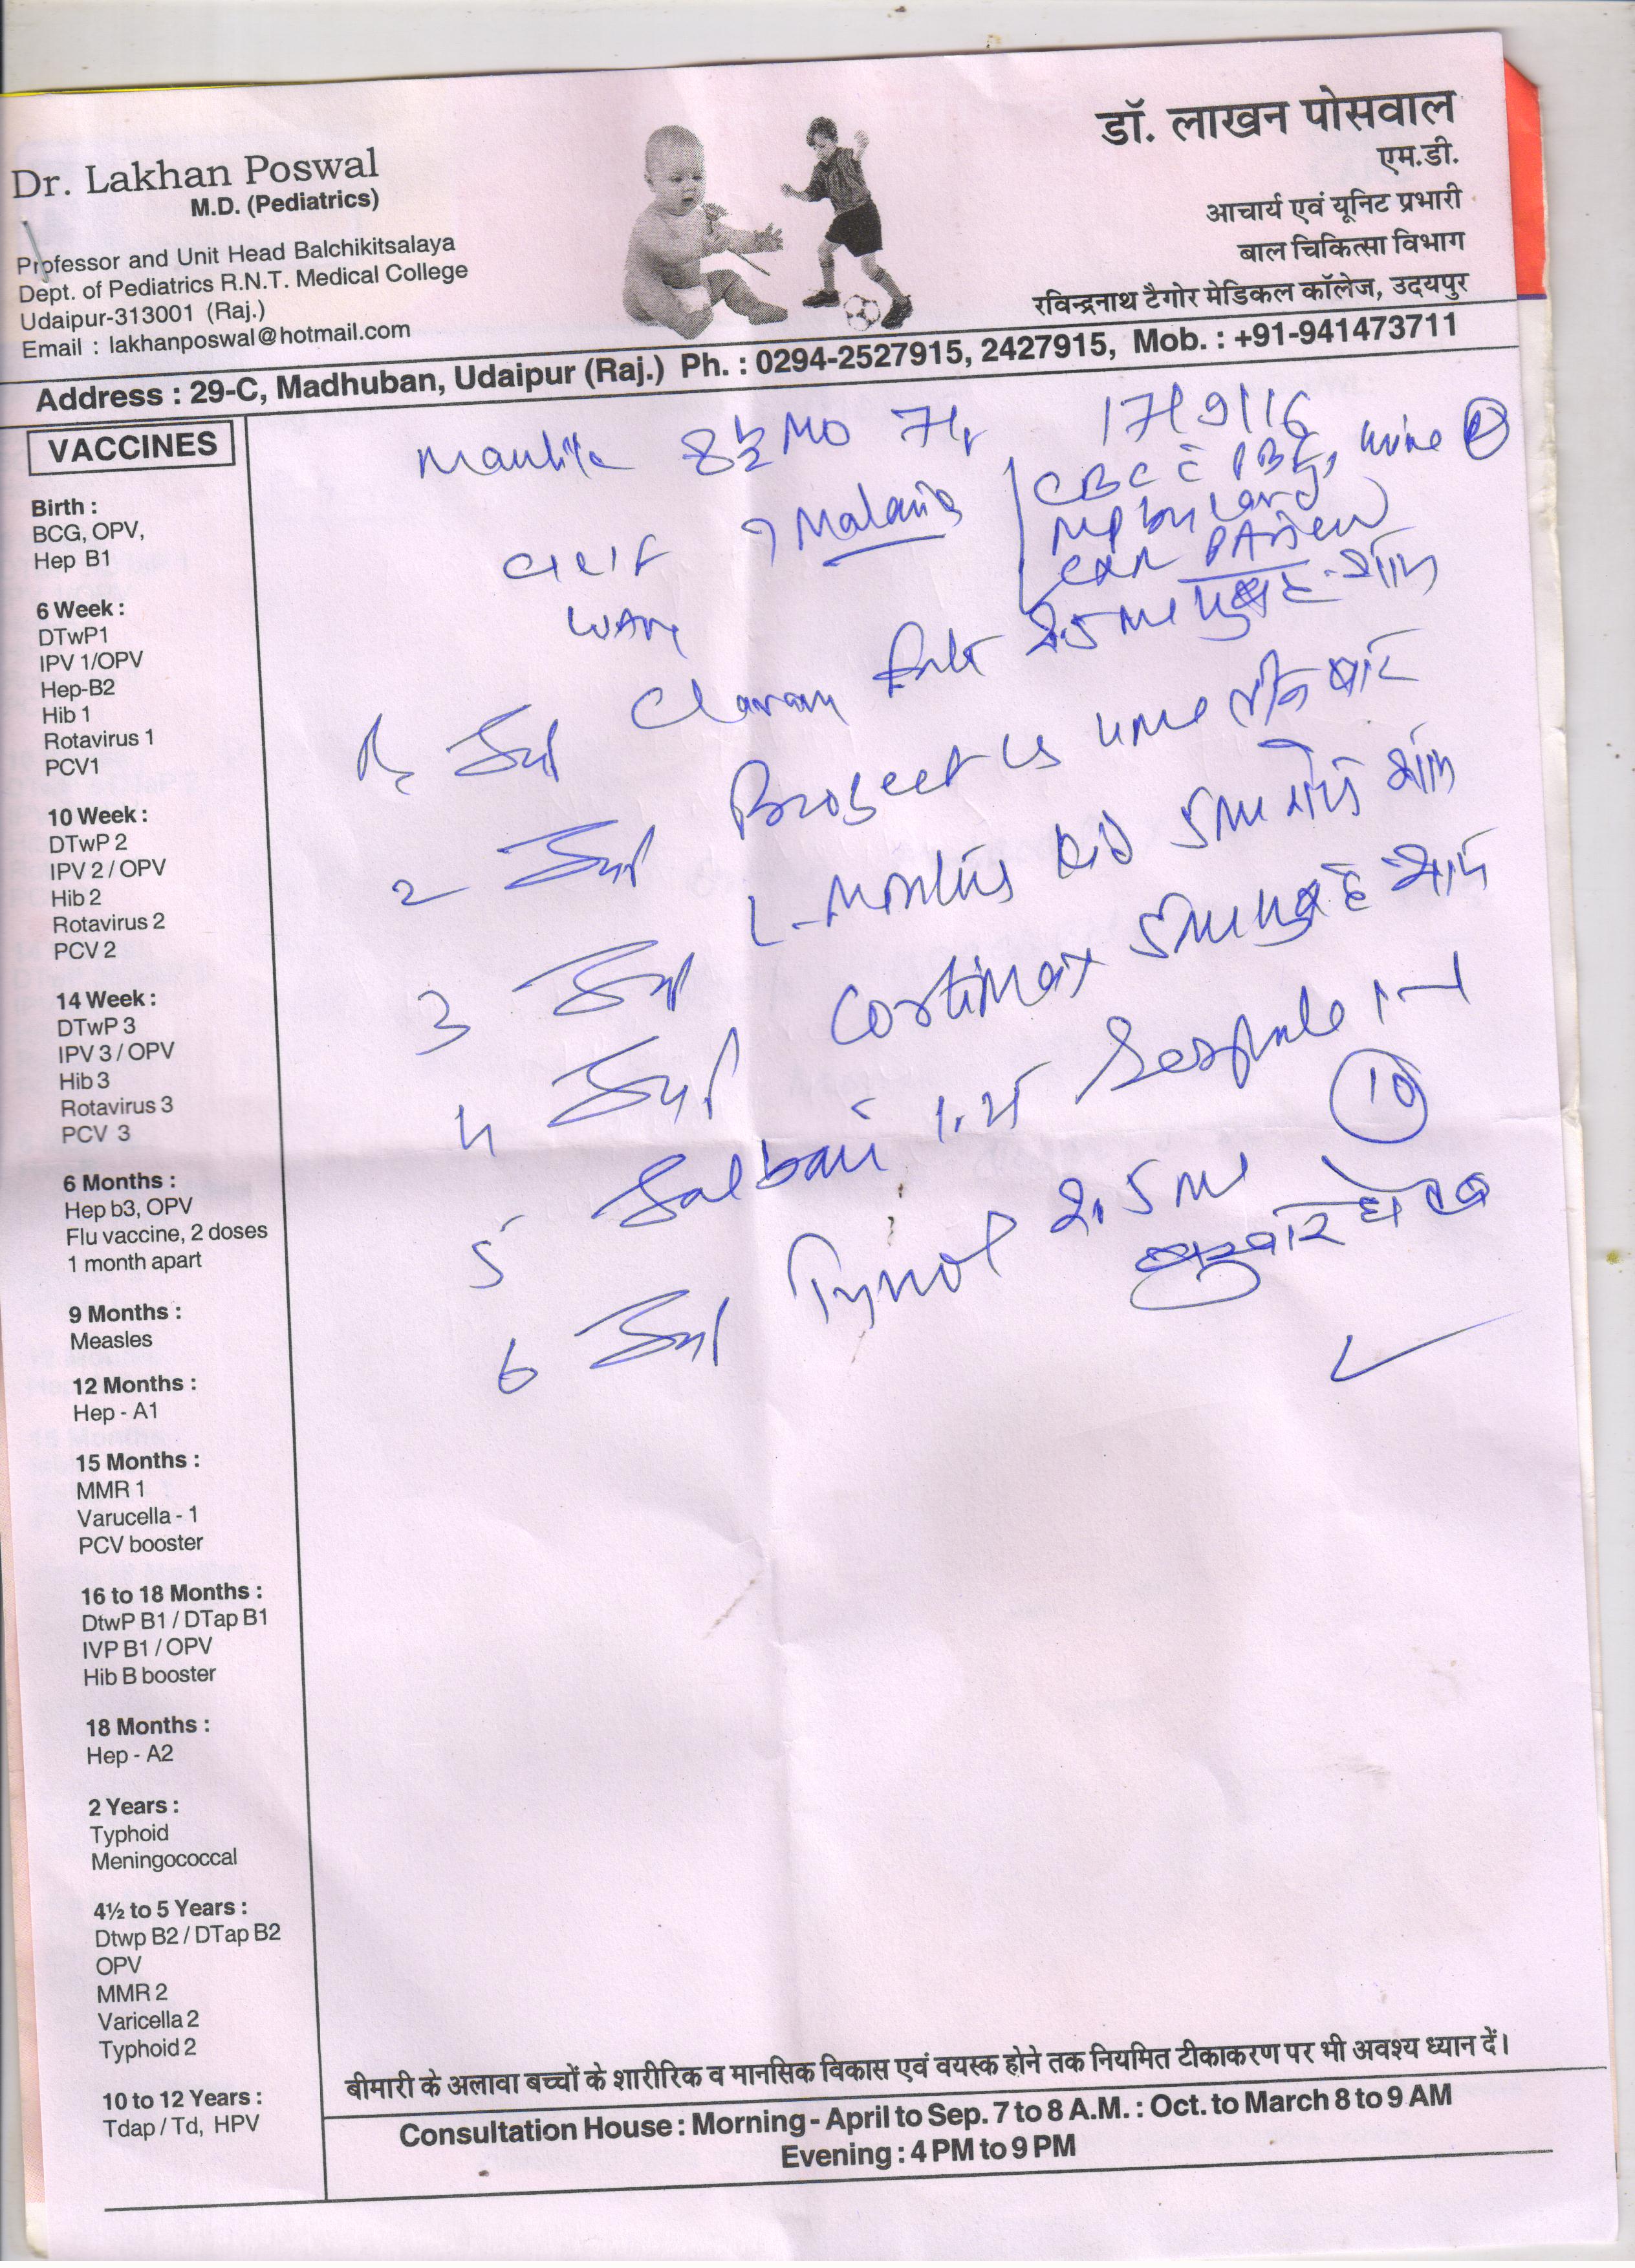 Dr. Lakhan Poswal
M.D. (Pediatrics)
Professor and Unit Head Balchikitsalaya
Dept. of Pediatrics R.N.T. Medical College
Udaipur-313001 (Raj.)
Email : lakhanposwal@hotmail.com
डॉ. लाखन पोसवाल
एम.डी.
आचार्य एवं यूनिट प्रभारी
बाल चिकित्सा विभाग
रविन्द्रनाथ टैगोर मेडिकल कॉलेज, उदयपुर
Address : 29-C, Madhuban, Udaipur (Raj.) Ph. : 0294-2527915, 2427915, Mob. : +91-941473711
VACCINES
Birth :
BCG, OPV,
Hep B1
6 Week :
DTwP1
IPV 1/OPV
Hep-B2
Hib 1
Rotavirus 1
PCV1
10 Week :
DTwP 2
IPV 2 / OPV
Hib 2
Rotavirus 2
PCV 2
14 Week :
DTwP 3
IPV 3 / OPV
Hib 3
Rotavirus 3
PCV 3
6 Months :
Hep b3, OPV
Flu vaccine, 2 doses
1 month apart
9 Months :
Measles
12 Months :
Hep - A1
15 Months :
MMR 1
Varucella - 1
PCV booster
16 to 18 Months :
DtwP B1 / DTap B1
IVP B1 / OPV
Hib B booster
18 Months :
Hep - A2
2 Years :
Typhoid
Meningococcal
4½ to 5 Years :
Dtwp B2 / DTap B2
OPV
MMR 2
Varicella 2
Typhoid 2
10 to 12 Years :
Tdap / Td, HPV
8½ MO 17/9/16
? Malaria
CBC
MP by card
CXR PA view
2.5 ml सुबह-शाम
2 तीन बार
3 5ml शाम
4 Cortimax 5ml सुबह शाम
5 10
6 2.5 ml
बुखार हो तब
बीमारी के अलावा बच्चों के शारीरिक व मानसिक विकास एवं वयस्क होने तक नियमित टीकाकरण पर भी अवश्य ध्यान दें।
Consultation House : Morning - April to Sep. 7 to 8 A.M. : Oct. to March 8 to 9 AM
Evening : 4 PM to 9 PM